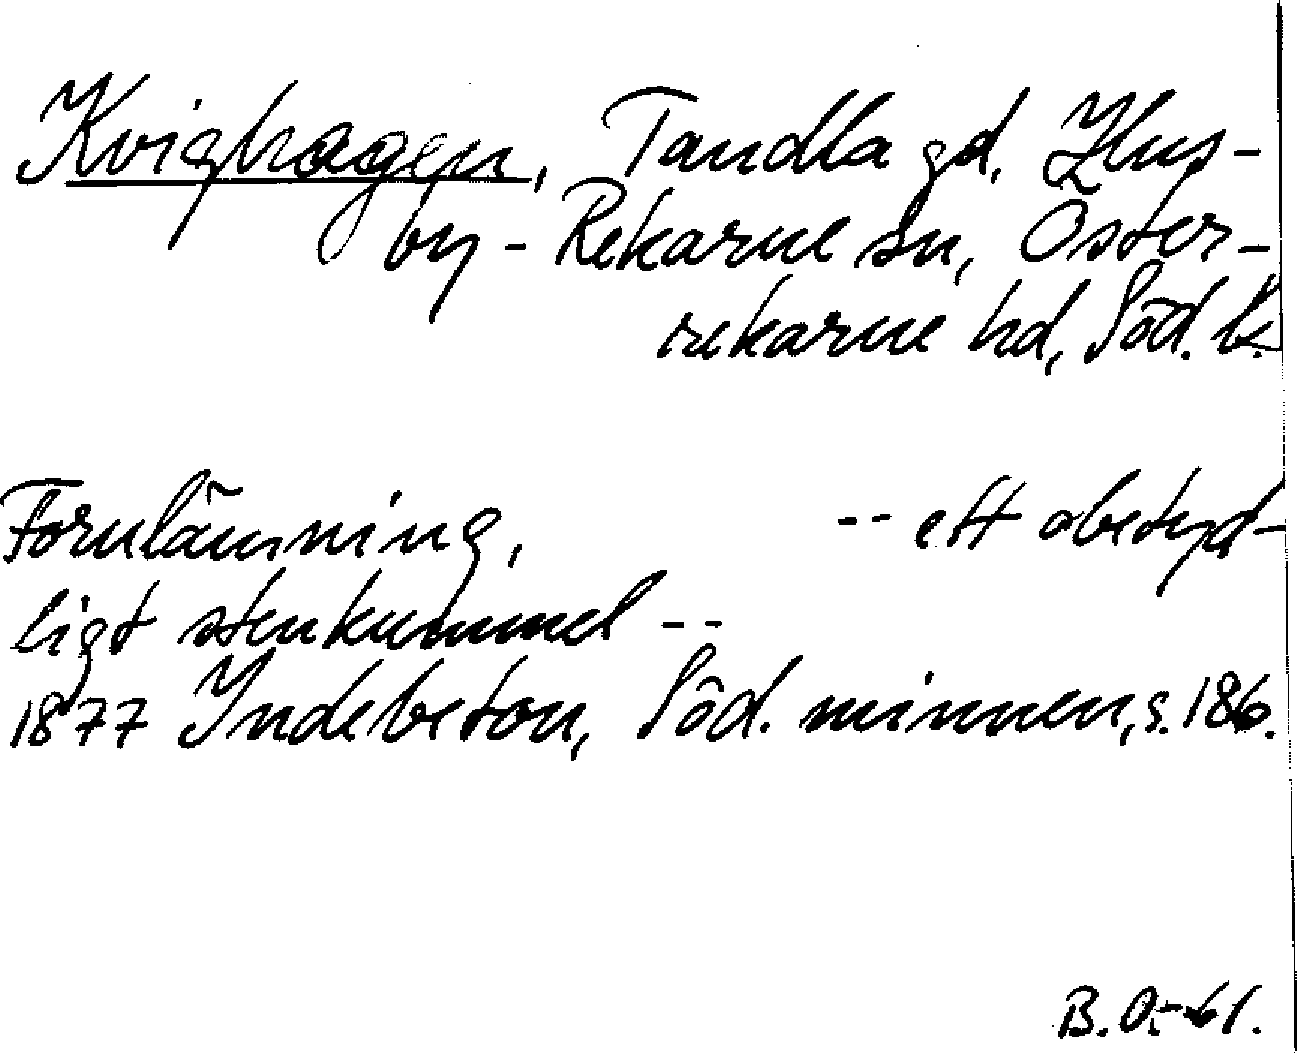 Kvighagen, Tandla gd, Hus-
by-Rekarne sn, Öster-
rekarne hd, Söd. l.
Fornlämning, -- ett obetyd-
ligt stenkummel --
1877 Indebetou, Söd. minnen, s. 186.
B. O. -61.